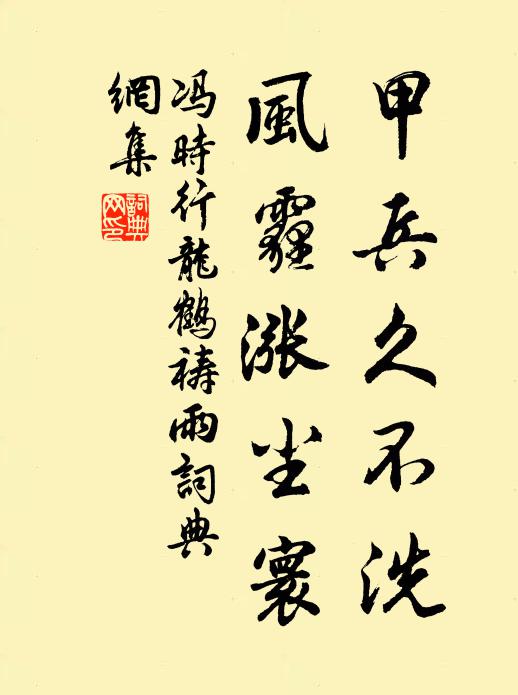 甲兵久不洗
風霾漲尘寰
冯時行龍鶴祷雨詞典
網集
詞典网印